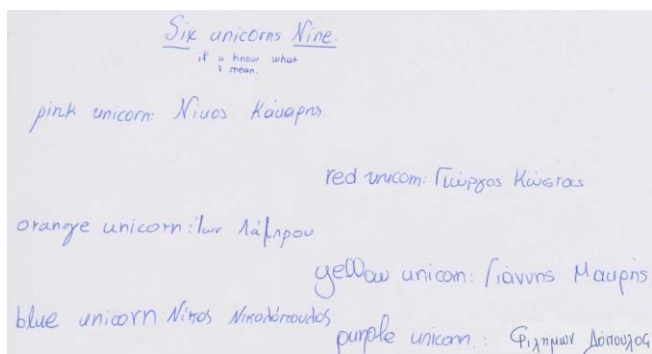 Six unicorns Nine.
if u know what
i mean.
pink unicorn: Νίκος Κάκαρης
red unicorn: Γιώργος Κώστας
orange unicorn: Ίων Λάμπρου
yellow unicorn: Γιάννης Μαυρής
blue unicorn: Νίκος Νικολόπουλος
purple unicorn: Φιλήμων Δόπουλος